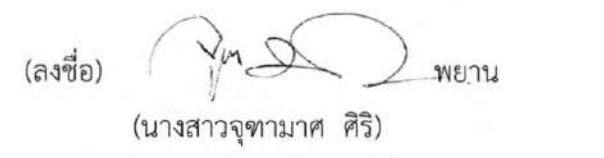 (ลงชื่อ) พยาน
(นางสาวจุฑามาศ ศิริ)